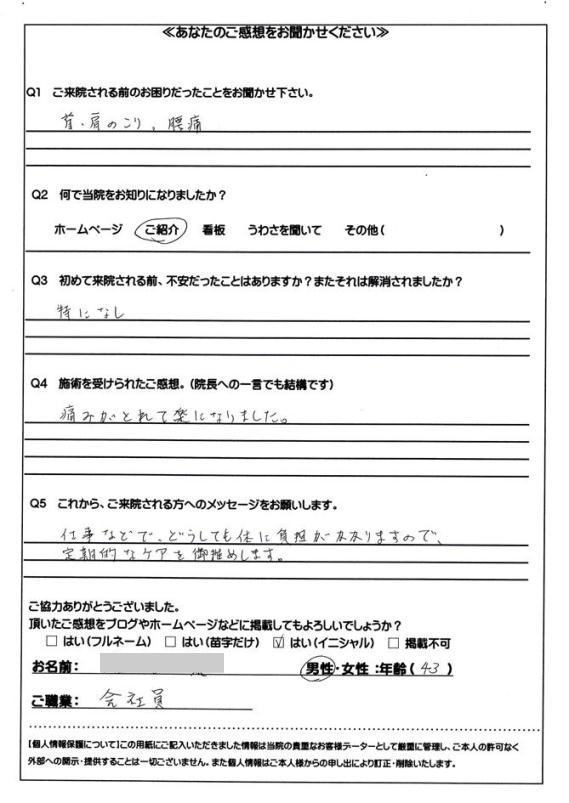 ≪あなたのご感想をお聞かせください≫
Q1 ご来院される前のお困りだったことをお聞かせ下さい。
首・肩のこり、腰痛
Q2 何で当院をお知りになりましたか？
ホームページ ご紹介 看板 うわさを聞いて その他( )
Q3 初めて来院される前、不安だったことはありますか？またそれは解消されましたか？
特になし
Q4 施術を受けられたご感想。（院長への一言でも結構です）
痛みがとれて楽になりました。
Q5 これから、ご来院される方へのメッセージをお願いします。
仕事などで、どうしても体に負担がかかりますので、
定期的なケアを御推めします。
ご協力ありがとうございました。
頂いたご感想をブログやホームページなどに掲載してもよろしいでしょうか？
□ はい（フルネーム） □ はい（苗字だけ） ☑ はい（イニシャル） □ 掲載不可
お名前： 男性・女性：年齢( 43 )
ご職業： 会社員
【個人情報保護について】この用紙にご記入いただきました情報は当院の貴重なお客様データーとして厳重に管理し、ご本人の許可なく
外部への開示・提供することは一切ございません。また個人情報はご本人様からの申し出により訂正・削除いたします。